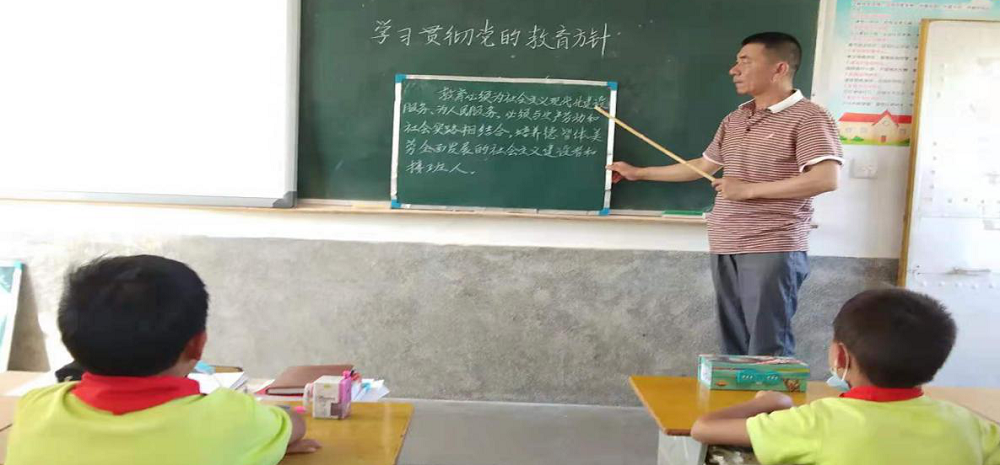 学习贯彻党的教育方针
教育必须为社会主义现代化建设
服务、为人民服务，必须与生产劳动和
社会实践相结合，培养德智体美
劳全面发展的社会主义建设者和
接班人。